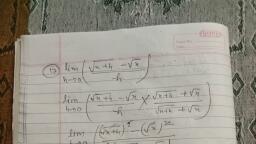 lim h→0 (√x+h − √x / h)
lim h→0 (√x+h − √x / h × √x+h + √x / √x+h + √x)
lim h→0 ((√x+h)² − (√x)²